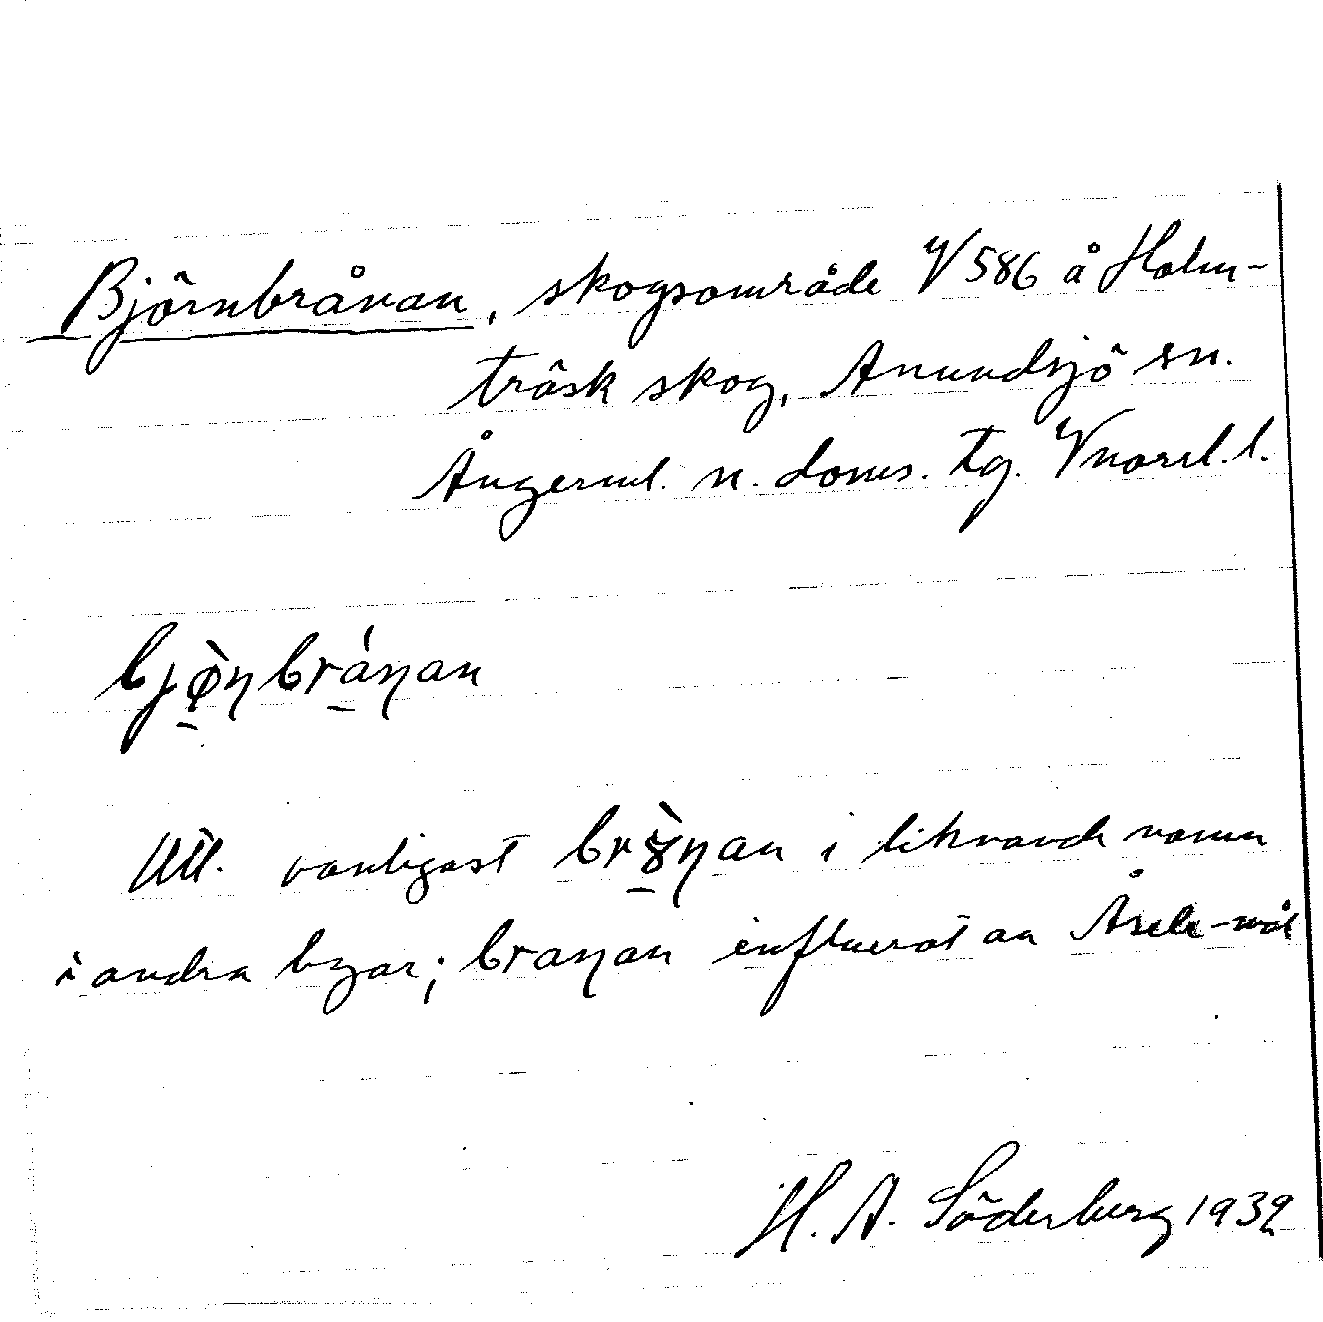 Björnbrånan, skogsområde V 586 å Holm-
träsk skog, Anundsjö sn.
Ångerml. n. doms. tg. Vnorrl. l.
bjø̀ŋbráŋan
Utt. vanligast brɤ̀ŋan i liknande namn
i andra byar; braŋan influerat av Åsele-mål
H. A. Söderberg 1932